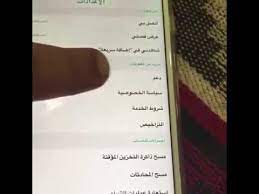 الإعدادات
اتصل بي
عرض قصتي
شاهدني في "إضافة سريعة"
دعم
سياسة الخصوصية
شروط الخدمة
التراخيص
مسح ذاكرة التخزين المؤقتة
مسح المحادثات